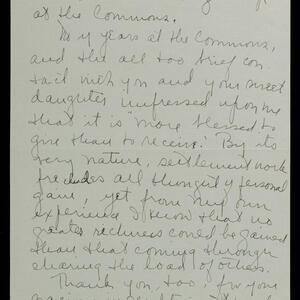 at the Commons.
My years at the Commons,
and the all too brief con
tact with you and your sweet
daughter impressed upon me
that it is "more blessed to
give than to receive." By its
very nature, settlement work
precludes all thought of personal
gain, yet from my own
experience I know that no
greater richness could be gained
than that coming through
sharing the load of others.
Thank you, too, for your